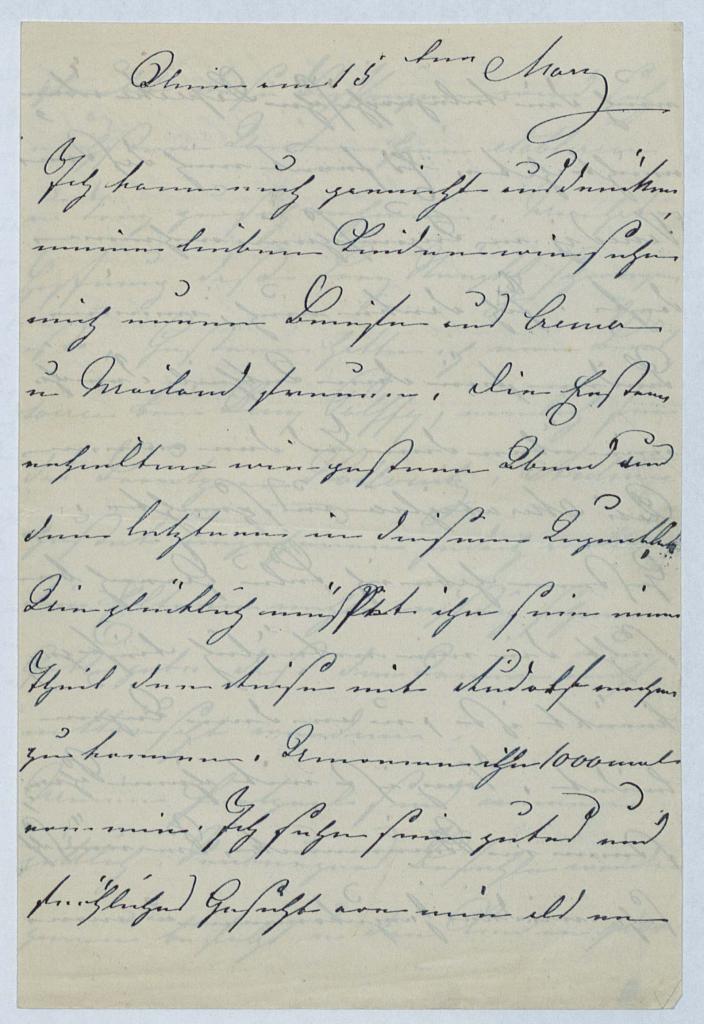 am 15 ten März
Ich kann euch gar nicht ausdrücken,
meine lieben Kinder wie sehr
mich euere Briefe aus Crema
u Mailand freuen. Die Ersteren
erhielten wir gestern Abend und
den letzteren in diesem Augenblick
Wie glücklich müsst ihr sein einen
Theil der Reise mit Rudolf machen
zu können. Umarme ihn 1000 mal
von mir. Ich sehe sein gutes und
fröhliches Gesicht vor mir als er